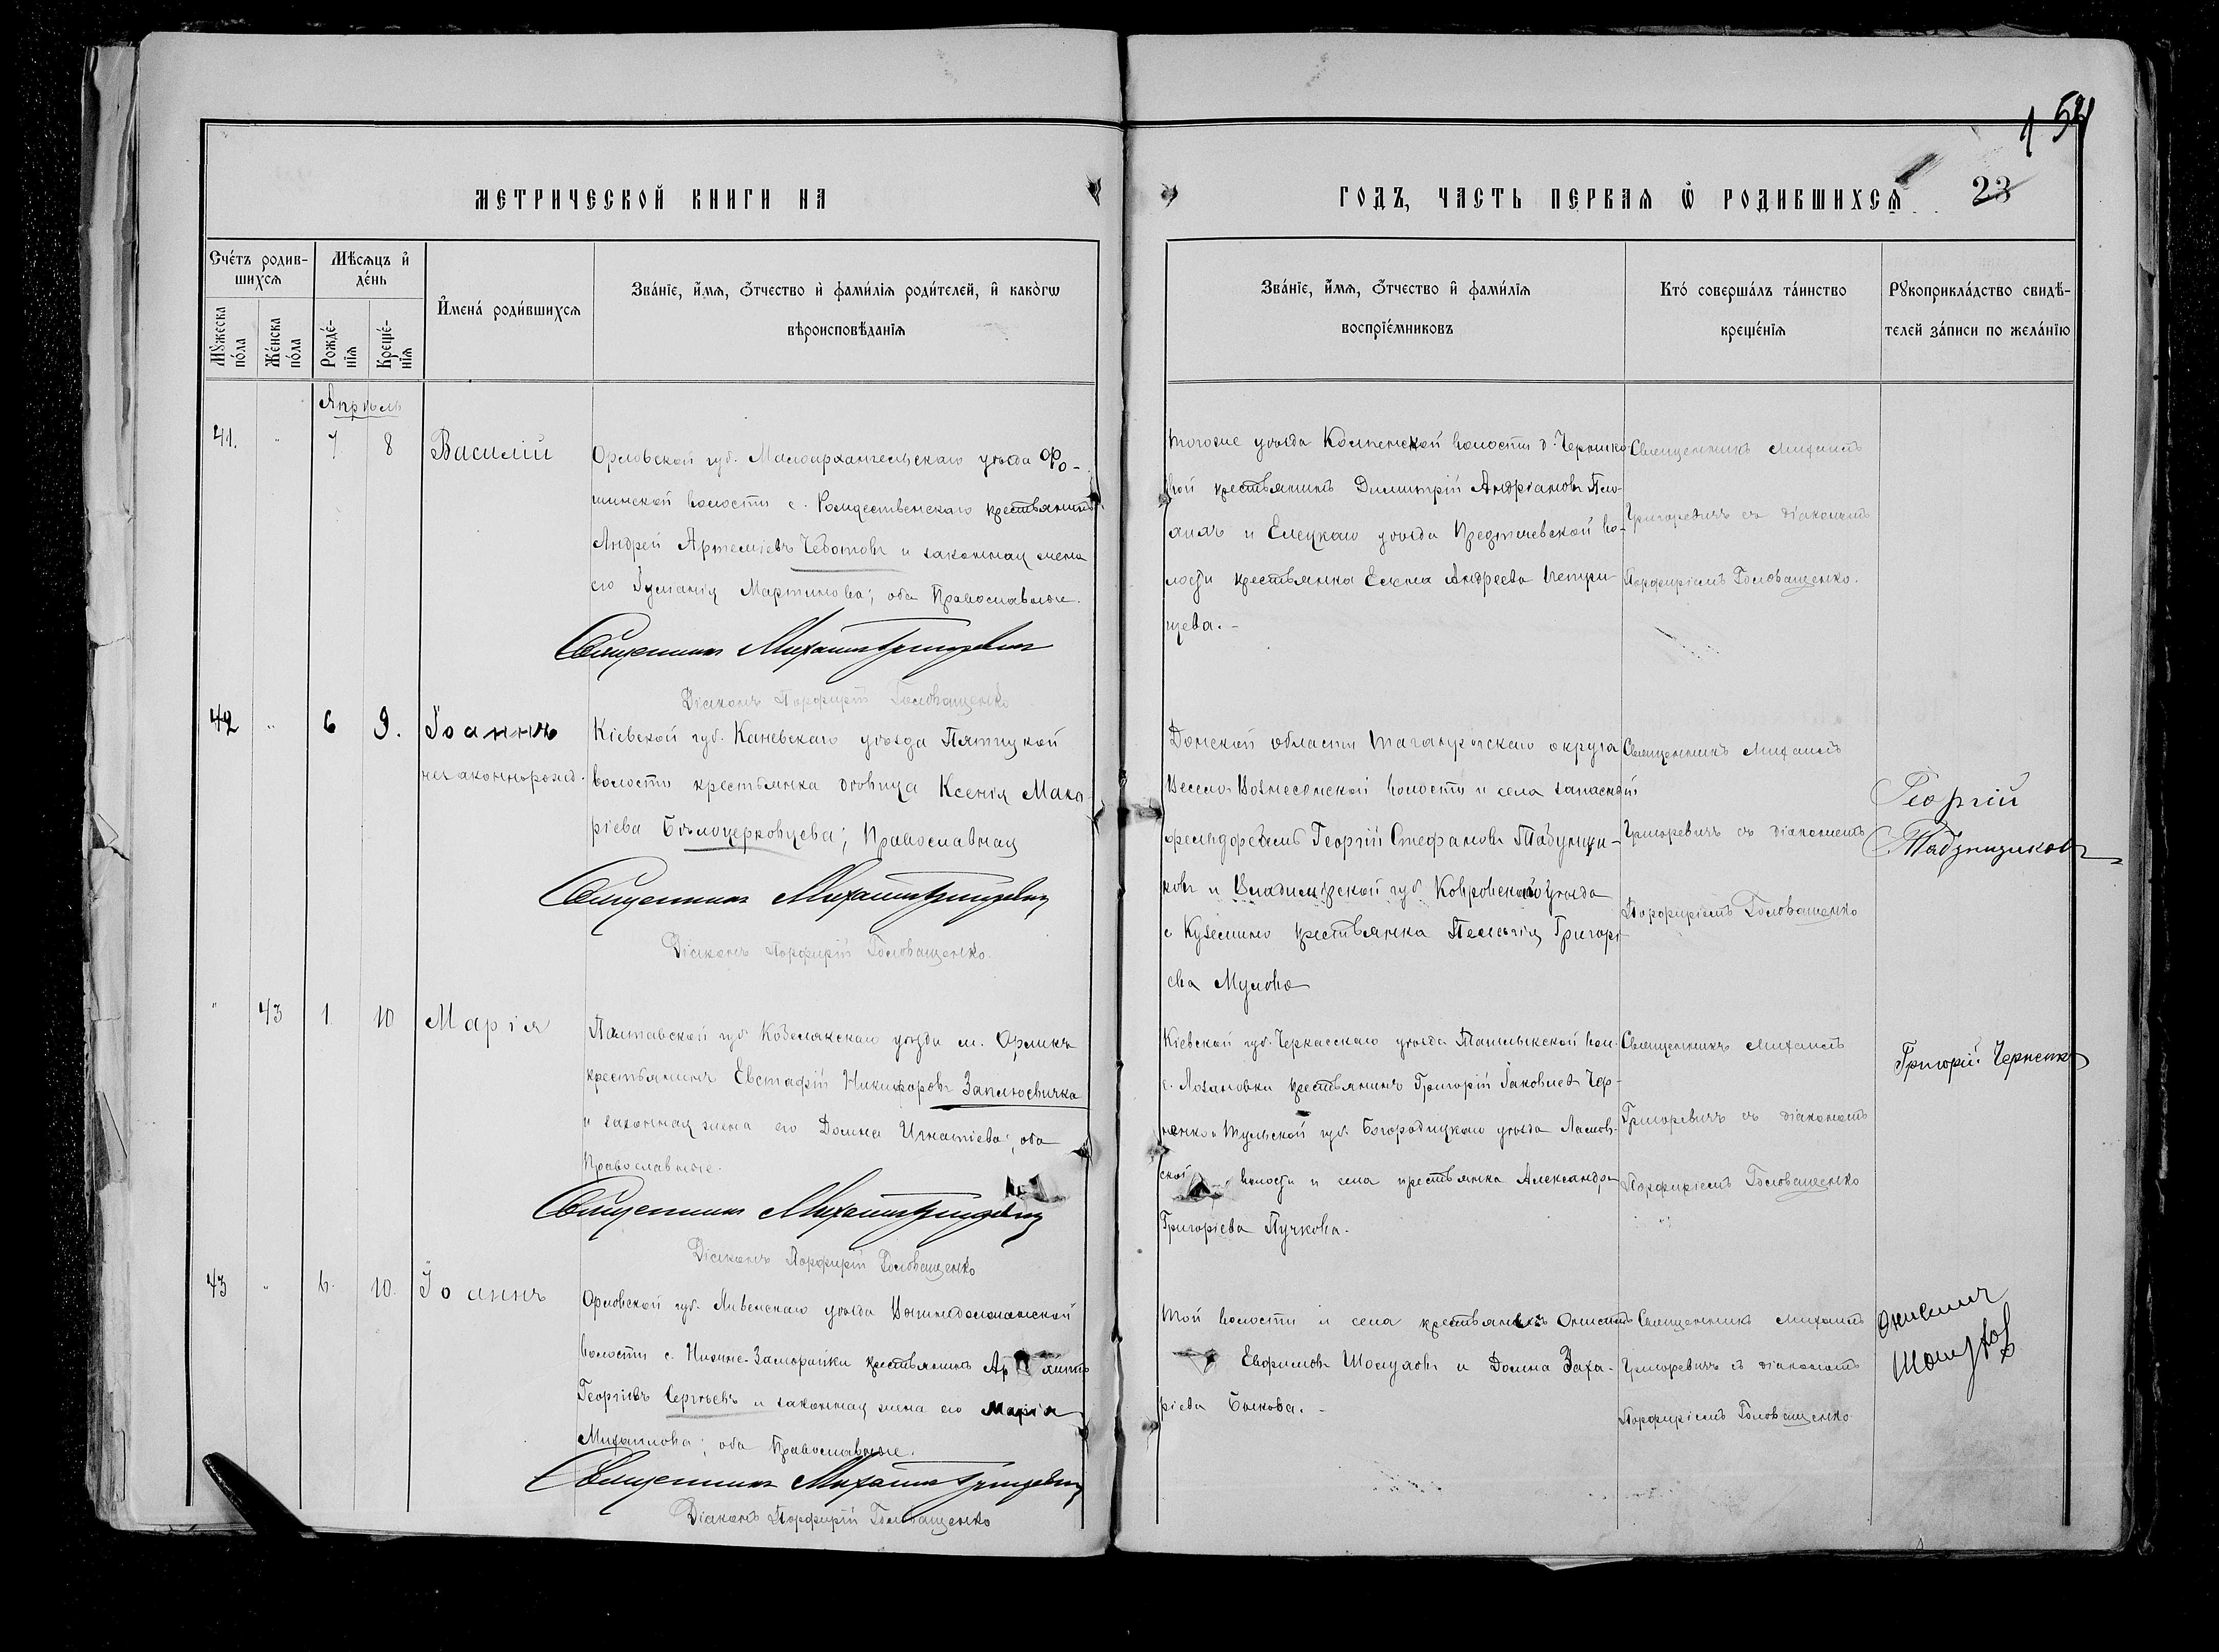 154
МЕТРИЧЕСКОЙ КНИГИ НА
ГОДЪ, ЧАСТЬ ПЕРВАЯ Ѿ РОДИВШИХСѦ 23
Счетъ родив-
шихсѧ
Мꙋжеска пола
Женска пола
Мѣсѧцъ и
день
Рожде-
нїѧ
Креще-
нїѧ
Имена родившихсѧ
Званїе, имѧ, ѻтчество и фамилїѧ родителей, и какогѡ
вѣроисповѣданїѧ
Званїе, имѧ, ѻтчество и фамилїѧ
воспрїемниковъ
Кто совершалъ таинство
крещенїѧ
Рꙋкоприкладство свидѣ-
телей записи по желанїю
Апрѣль
41. " 7 8 Василій
Орловской губ. Малоархангельскаго уѣзда Фо-
шинской волости с. Рождественскаго крестьянинъ
Андрей Артеміевъ Чеботовъ и законная жена
его Мартинова; оба Православные.
Священникъ Михаилъ Григоревичъ
Діаконъ Порфирій Головащенко
тогоже уѣзда волости д.
вой крестьянинъ Димитрій Андріановъ
и Елецкаго уѣзда Предтечевской во-
лости крестьянка Елена Андреева
цева.-
Священникъ Михаилъ
Григоревичъ съ діакономъ
Порфиріемъ Головащенко.
42 " 6 9. Іоаннъ
незаконнорожд.
Кіевской губ. Каневскаго уѣзда Пятицкой
волости крестьянка вдовица Ксенія Мака-
ріева Бѣлоцерковцева; Православная
Священникъ Михаилъ Григоревичъ
Діаконъ Порфирій Головащенко.
Донской области Таганрогскаго округа
Весело Вознесенской волости и села запасной
фельдфебель Георгій Стефановъ Табунщи-
ковъ и Владимірской губ. Ковровскаго уѣзда
с Кузьмино крестьянка Пелагія Григорі-
ева Мулова
Священникъ Михаилъ
Григоревичъ съ діакономъ
Порфиріемъ Головащенко
Георгій
Табунщиковъ
" 43 1 10 Марія
Полтавской губ Кобелякскаго уѣзда м. Орликъ
крестьянинъ Евстафій Никифоровъ Заплюевичка
и законная жена его Домна Игнатіева; оба
Православные.
Священникъ Михаилъ Григоревичъ
Діаконъ Порфирій Головащенко
Кіевской губ. Черкасскаго уѣзда Ташлыкской вол.
с. Лозановки крестьянинъ Григорій Іаковлевъ Чер-
ненко и Тульской губ. Богородицкаго уѣзда
ской волости и села крестьянка Александра
Григоріева Пучкова.
Священникъ Михаилъ
Григоревичъ съ діакономъ
Порфиріемъ Головащенко
Григорій Черненко
43 " 6. 10. Іоаннъ
Орловской губ. Ливенскаго уѣзда
волости с. Нижне-Заморайки крестьянинъ
Георгіевъ Сергѣевъ и законная жена его Марія
Михаилова; оба Православные.
Священникъ Михаилъ Григоревичъ
Діаконъ Порфирій Головащенко
Той волости и села крестьянинъ
Евфимовъ и Домна Заха-
ріева Быкова.-
Священникъ Михаилъ
Григоревичъ съ діакономъ
Порфиріемъ Головащенко